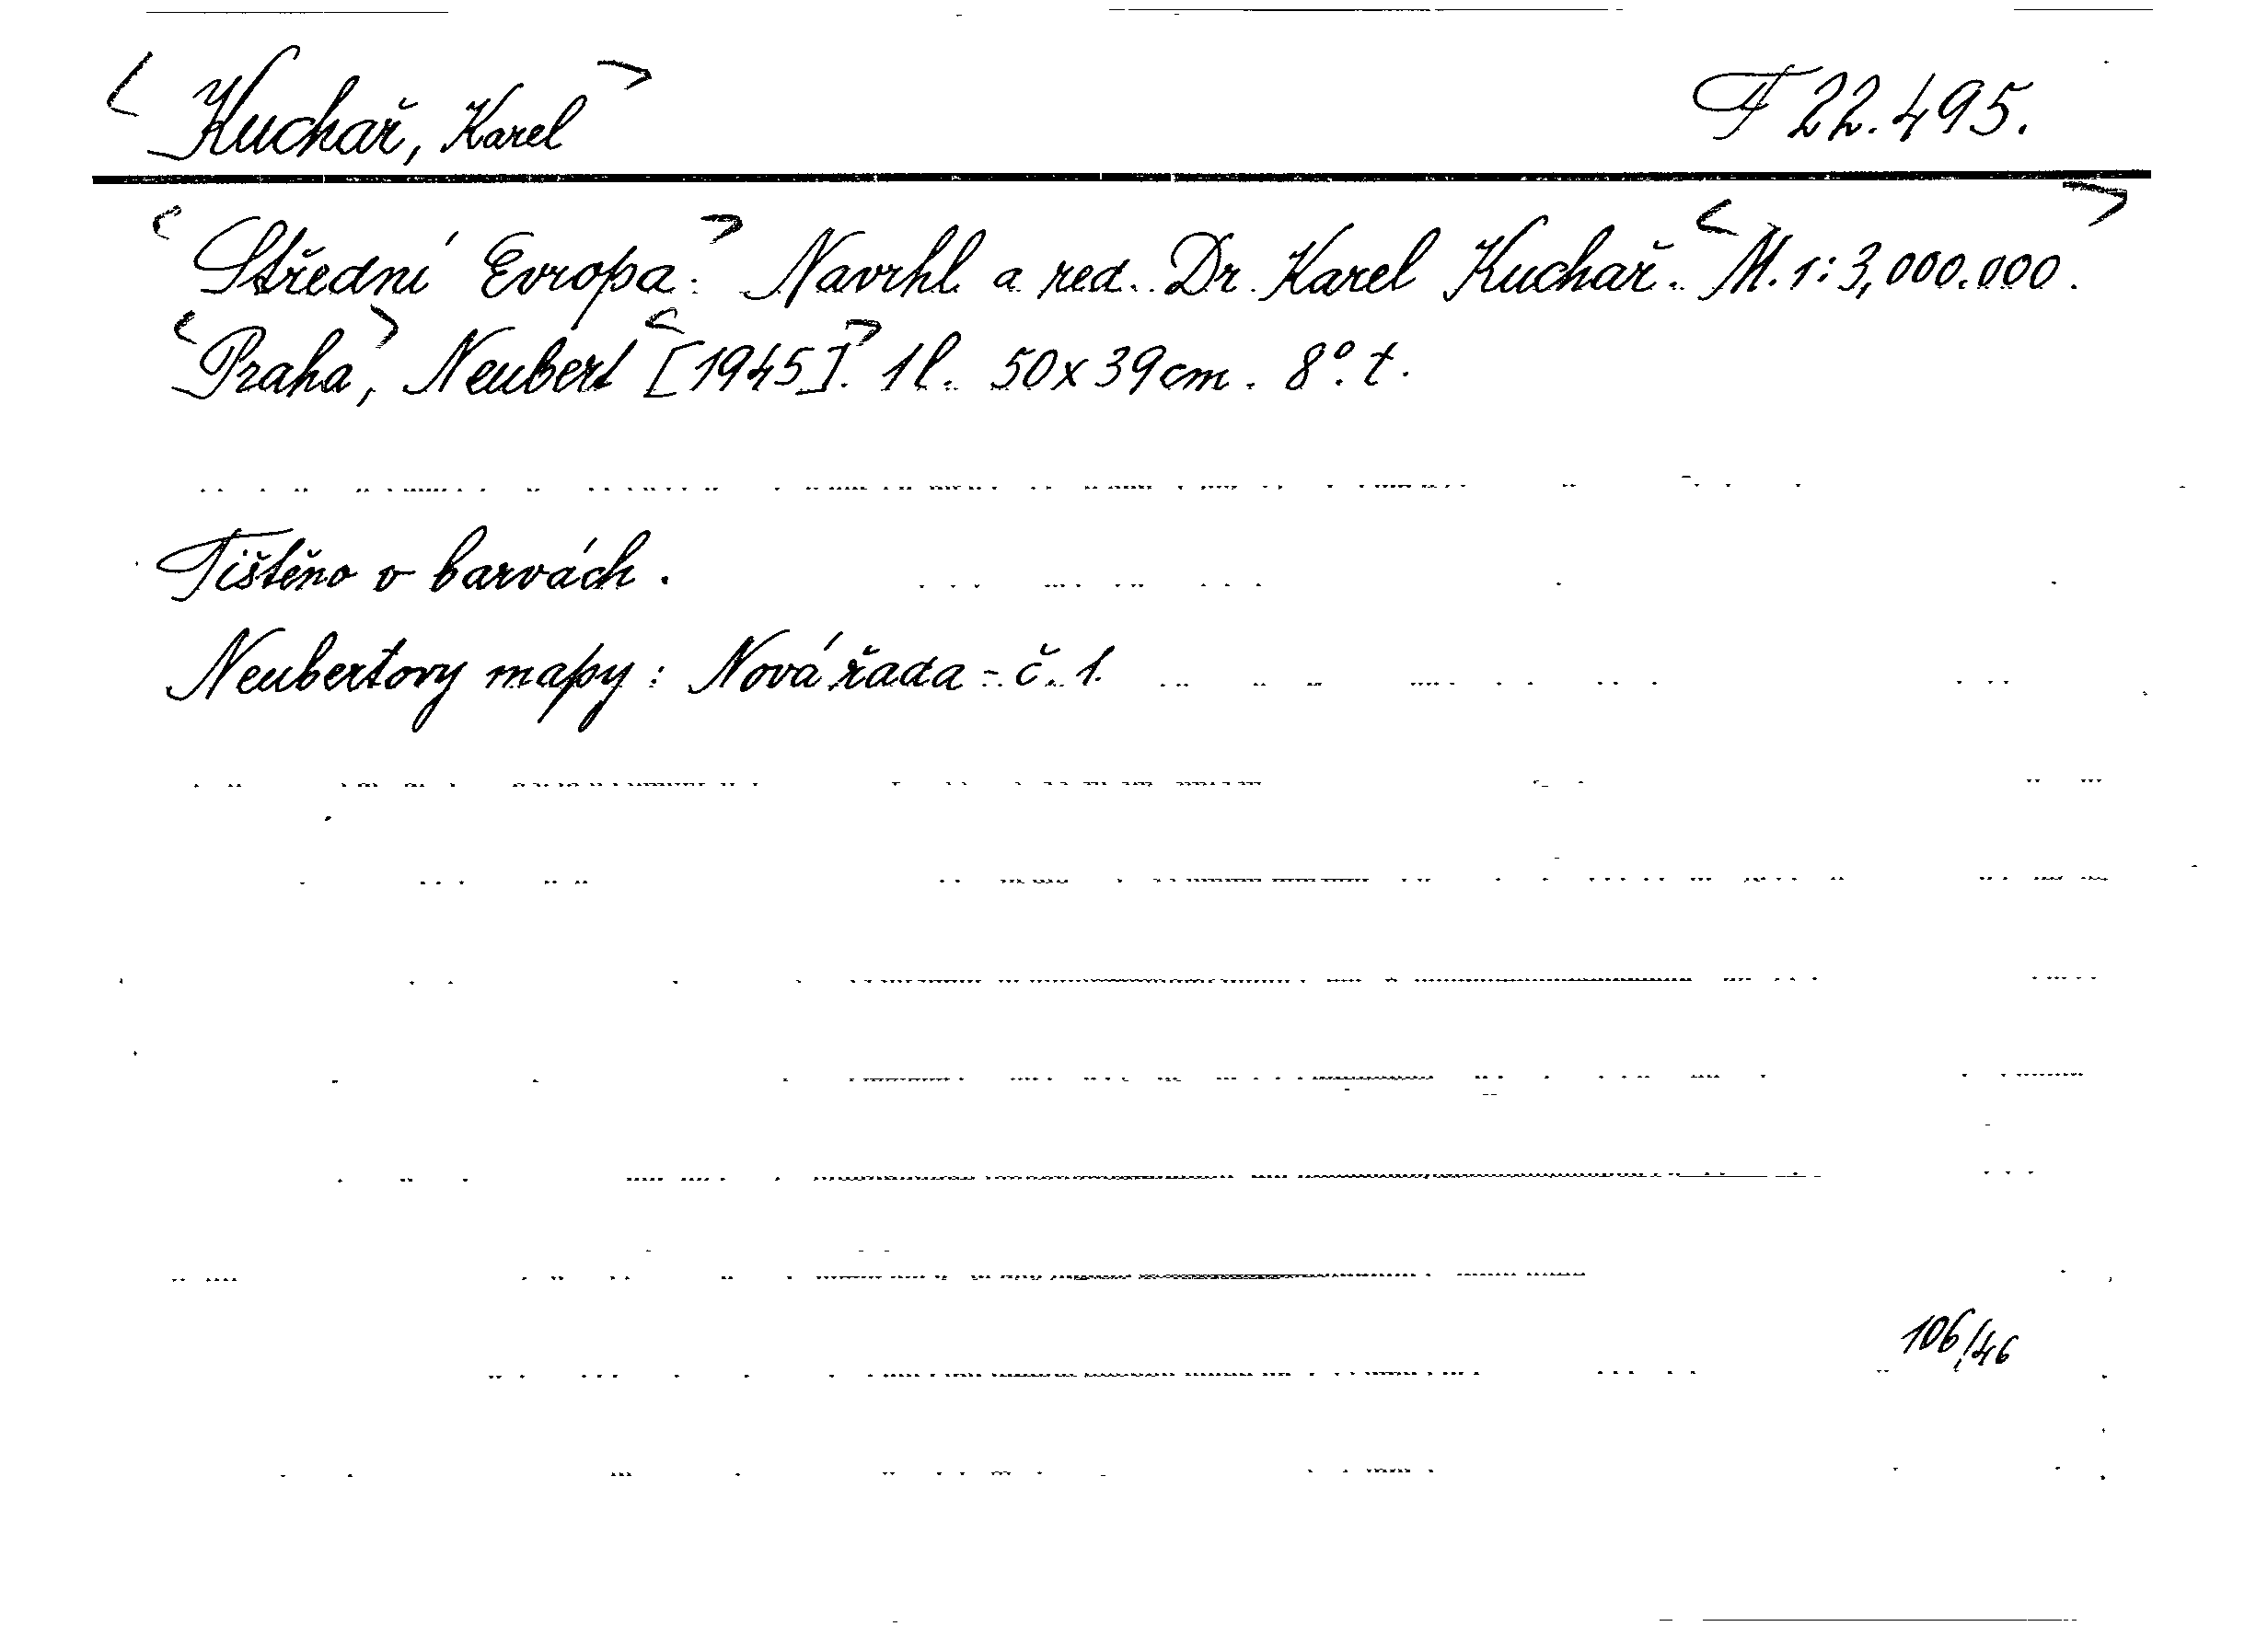 <Kuchař, Karel> F 22.495.
<Střední Evropa.> Navrhl a red. Dr. Karel Kuchař. <M. 1:3,000.000.>
<Praha,> Neubert <[1945].> 1 l. 50x39cm. 8°. t.
Tištěno v barvách.
Neubertovy mapy: Nová řada - č. 1.
106/46